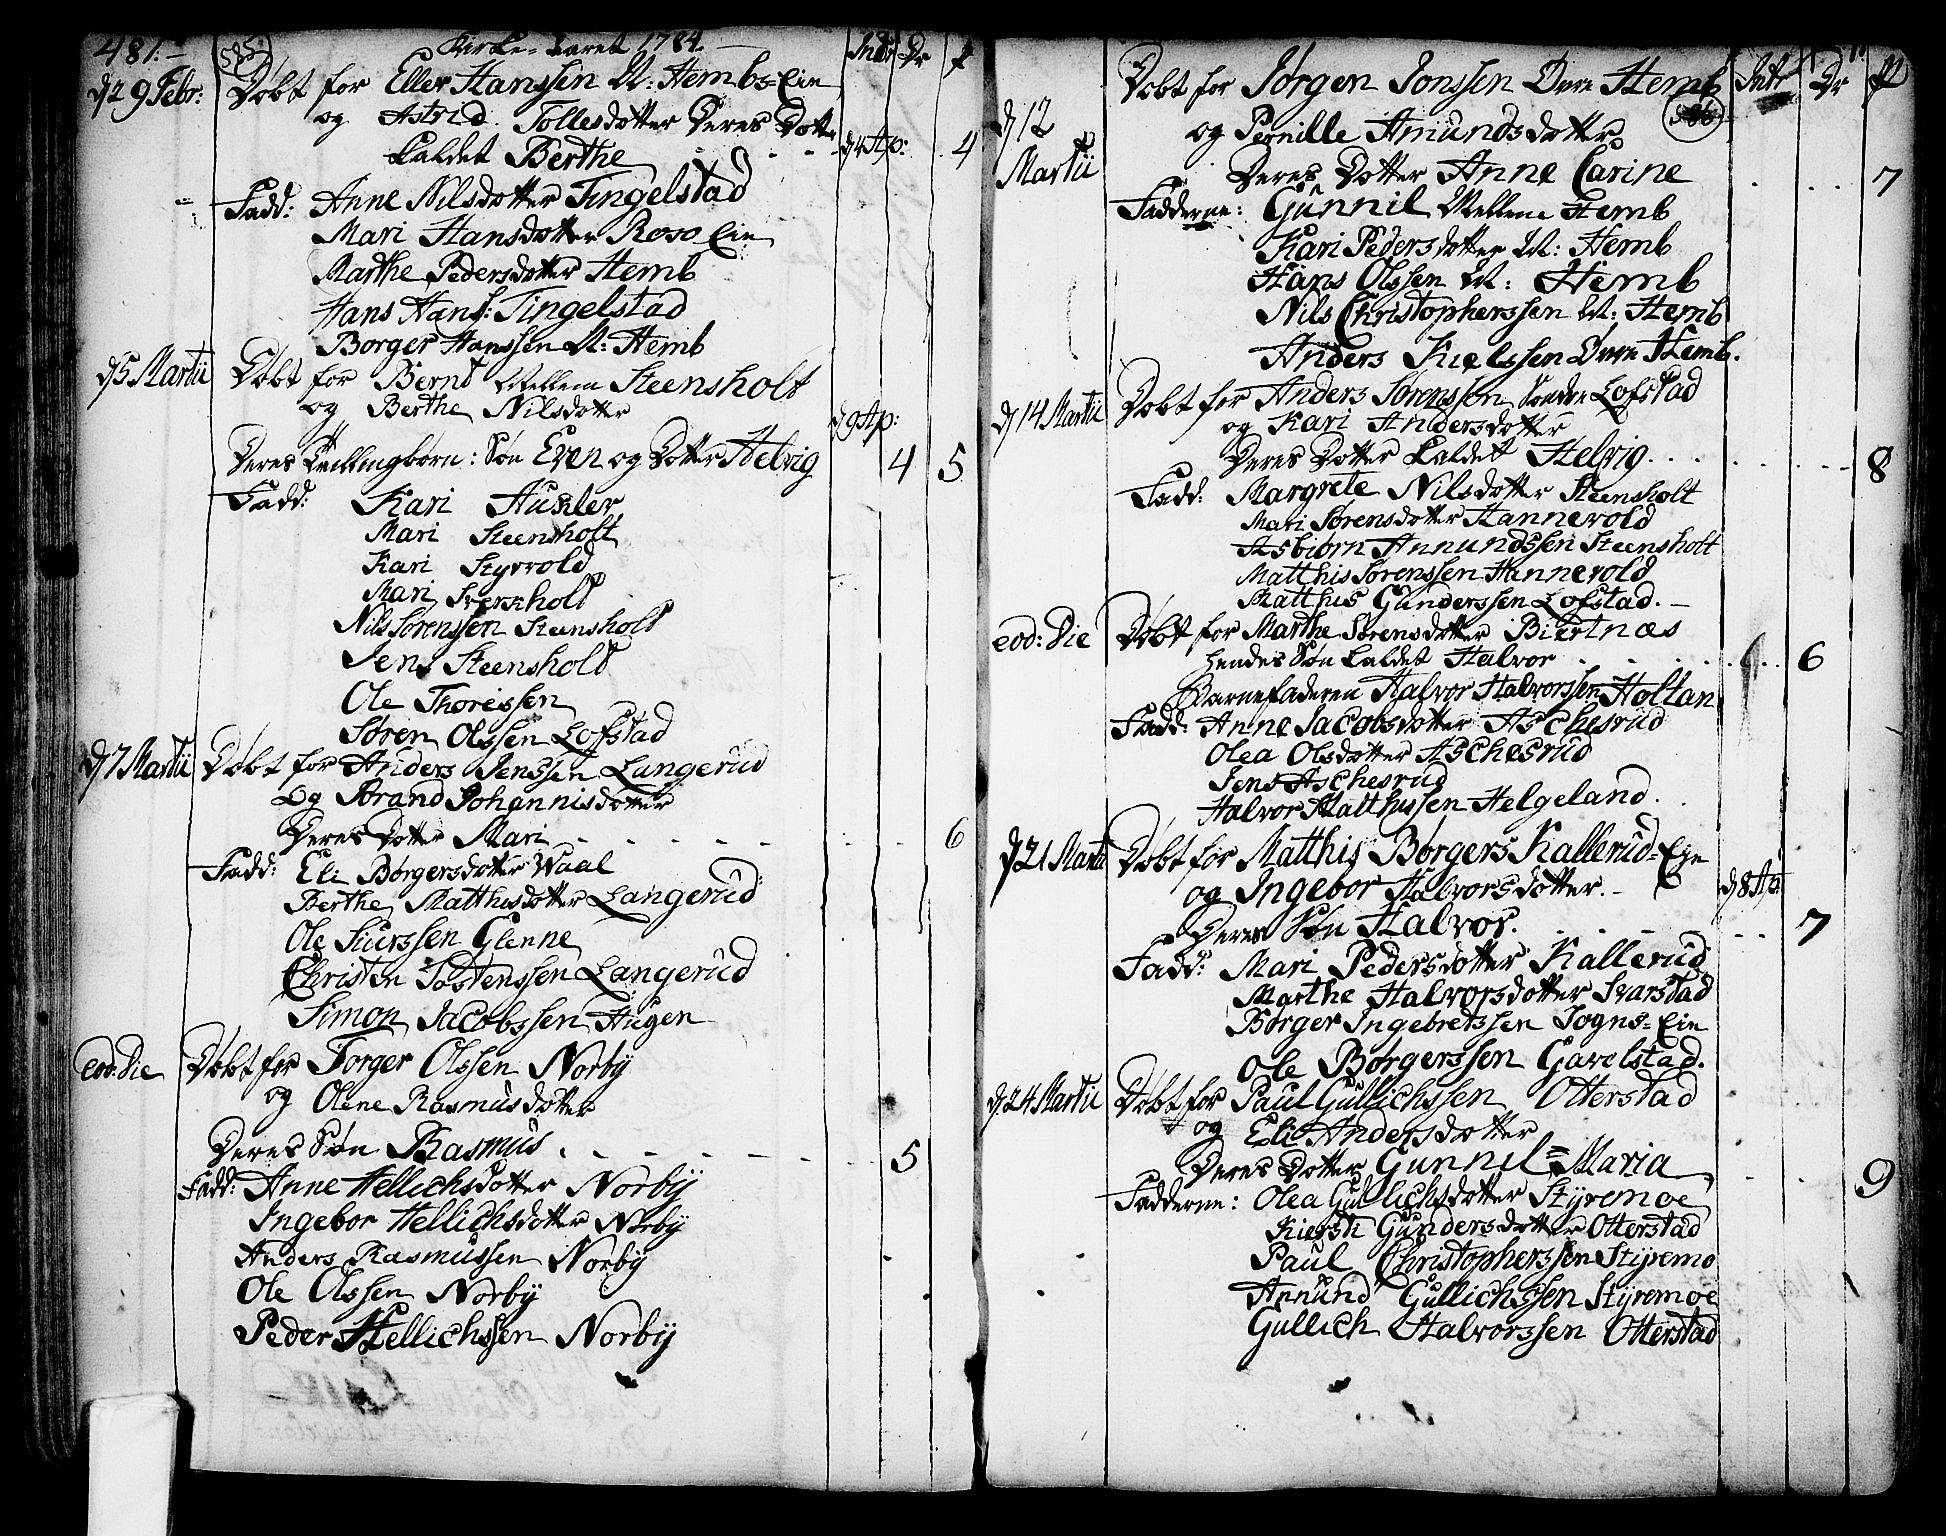 481.
585
Kirke-Aaret 1784.
Intr Dr P
d 29 Febr: Døbt for Eller Hanssen N: Hembs-Eie
og Astrid Tollesdotter Deres Dotter
Kaldet Berthe d 4 Ap: 4
Fadd: Anne Nilsdotter Tingelstad
Mari Hansdotter Roso Eie
Marthe Pedersdotter Hemb
Hans Hans: Tingelstad
Borger Hanssen N: Hemb
d 5 Martii Døbt for Bernt Mellem Steensholt
og Berthe Nilsdotter d 9 Ap:
Deres Tvillingbørn: Søn Even og Dotter Helvig 4 5
Fadd: Kari
Mari Steensholt
Kari Styrvold
Mari
Nils Sørenssen Steensholt
Jens Steensholt
Ole Thoressen
Søren Olssen Lofstad
d 7 Martii Døbt for Anders Jenssen Langerud
Og Strand Johannisdotter
Deres Dotter Mari 6
Fadd: Eli Børgersdotter Waal
Berthe Matthisdotter Langerud
Ole Siurssen Glenne
Christen Tostenssen Langerud
Simon Jacobssen Haugen
eod: Die Døbt for Torger Olssen Norby
og Olene Rasmusdotter
Deres Søn Rasmus 5
Fadd: Anne Hellichsdotter Norby
Ingebor Hellichsdotter Norby
Anders Rasmussen Norby
Ole Olssen Norby
Peder Hellichssen Norby
586
Intr Dr P
d 12 Martii Døbt for Jørgen Jonssen Øvre Hemb
og Pernille Amundsdotter
Deres Dotter Anne Carine 7
Fadderne: Gunnil Mellem Hemb
Kari Pedersdotter M: Hemb
Hans Olssen M: Hemb
Nils Christopherssen M: Hemb
Anders Kielssen Øvre Hemb.
d 14 Martii Døbt for Anders Sørenssen Søndre Lofstad
og Kari Andersdotter
Deres Dotter Kaldet Helvig 8
Fadd: Margrete Nilsdotter Steensholt
Mari Sørensdotter Hannevold
Asbiørn Annundssen Steensholt
Matthis Sørenssen Hannevold
Matthis Gunderssen Lofstad.
eod: Die Døbt for Marthe Sørensdotter Biertnæs
hendes Søn Kaldet Halvor 6
Barnefaderen Halvor Halvorssen Holtan
Fadd: Anne Jacobsdotter Aschesrud
Olea Olsdotter Aschesrud
Jens Aschesrud
Halvor Matthissen Helgeland.
d 21 Martii Døbt for Matthis Børgers Kallerud-Eie
og Ingebor Halvorsdotter d 8 Ap:
Deres Søn Halvor. 7
Fadd: Mari Pedersdotter Kallerud
Marthe Halvorsdotter Svarstad
Børger Ingebretssen Sogns-Eie
Ole Børgerssen Gavelstad.
d 24 Martii Døbt for Paul Gullichssen Otterstad
og Eli Andersdotter
Deres Dotter Gunnil-Maria 9
Fadderne: Olea Gullichsdotter Styremoe
Kiersti Gundersdotter Otterstad
Paul Christopherssen Styremo
Annund Gullichssen Styremoe
Gullich Halvorssen Otterstad